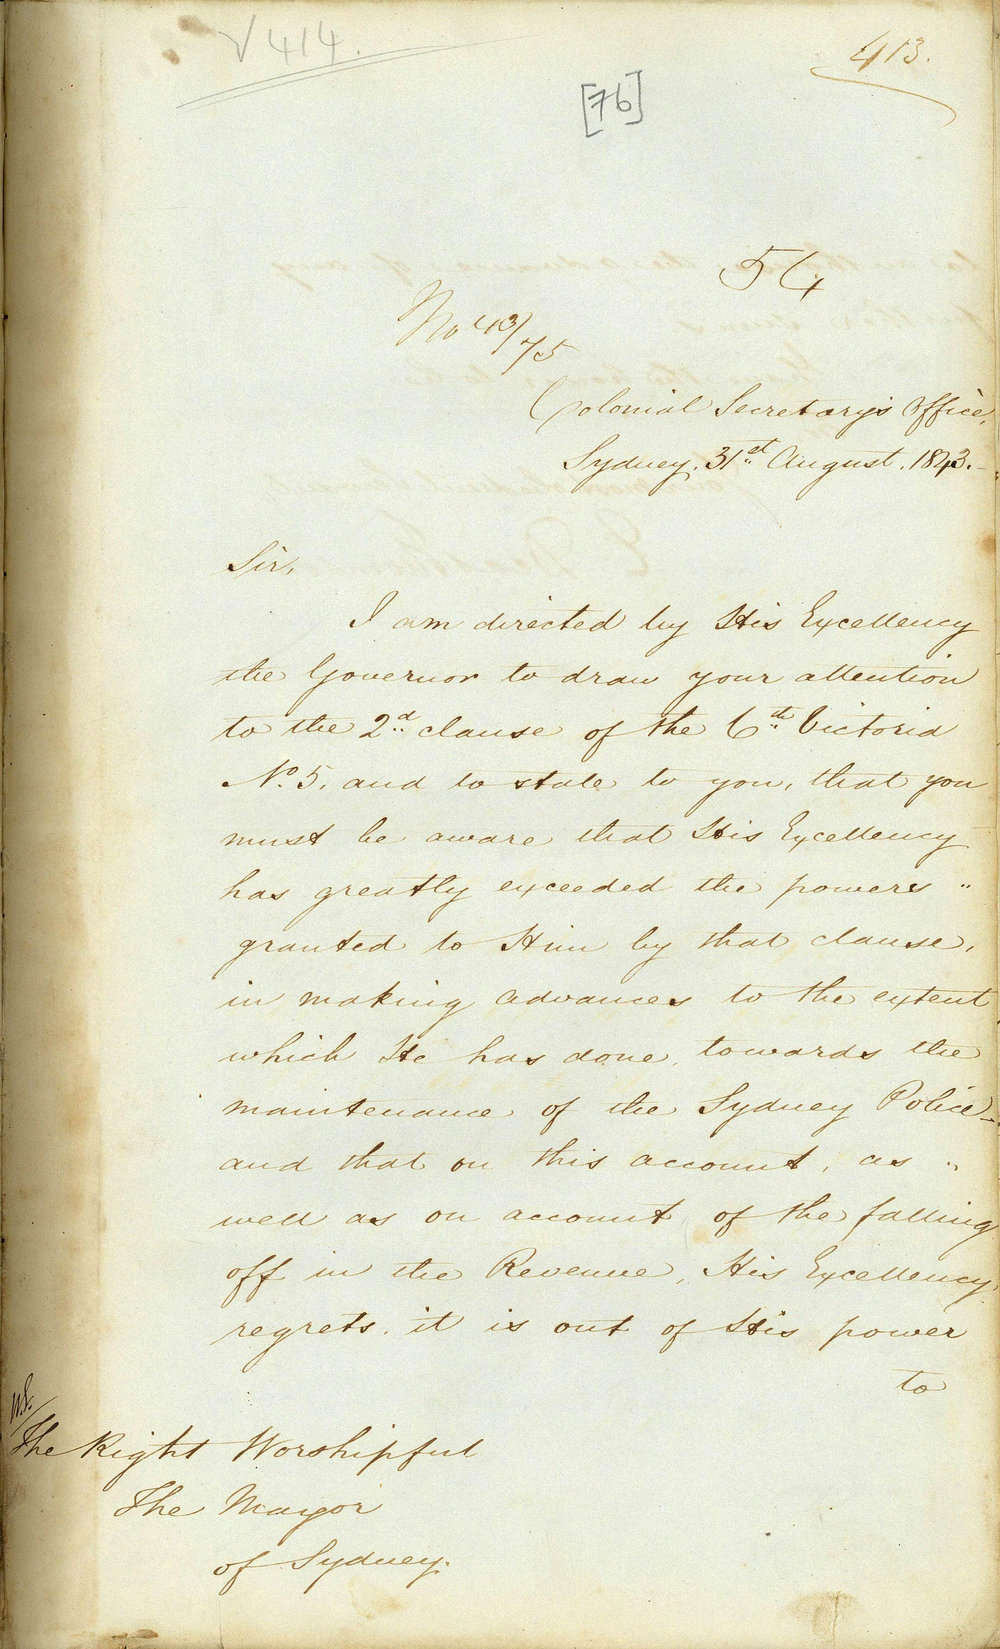 √ 414.
413.
[76]
54
No 43/75
Colonial Secretary's Office,
Sydney. 31st August. 1843.-
Sir,
I am directed by His Excellency
the Governor to draw your attention
to the 2d clause of the 6th Victoria
No. 5. and to state to you, that you
must be aware that His Excellency
has greatly exceeded the powers "
granted to Him by that clause,
in making advances to the extent
which He has done, towards the
maintenance of the Sydney Police_
and that on this account, as "
well as on account of the falling
off in the Revenue, His Excellency
regrets. it is out of His power
to
The Right Worshipful
The Mayor
of Sydney.